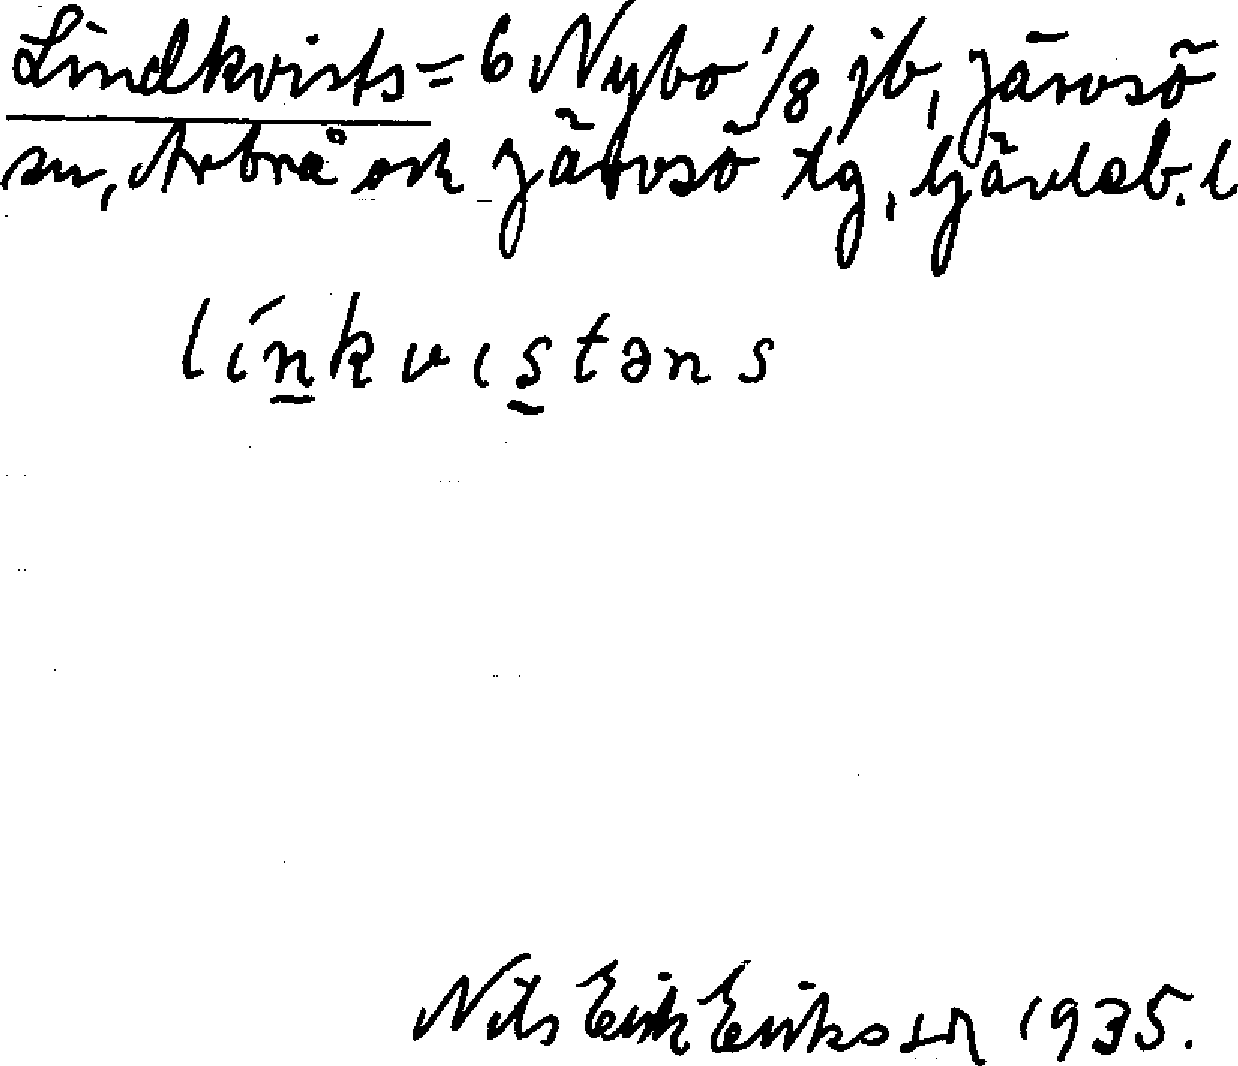 Lindkvists = 6 Nybo 1/8 jb, Järvsö
sn, Arbrå och Järvsö tg, Gävleb. l
línkvıstəns
Nils Erik Eriksson 1935.